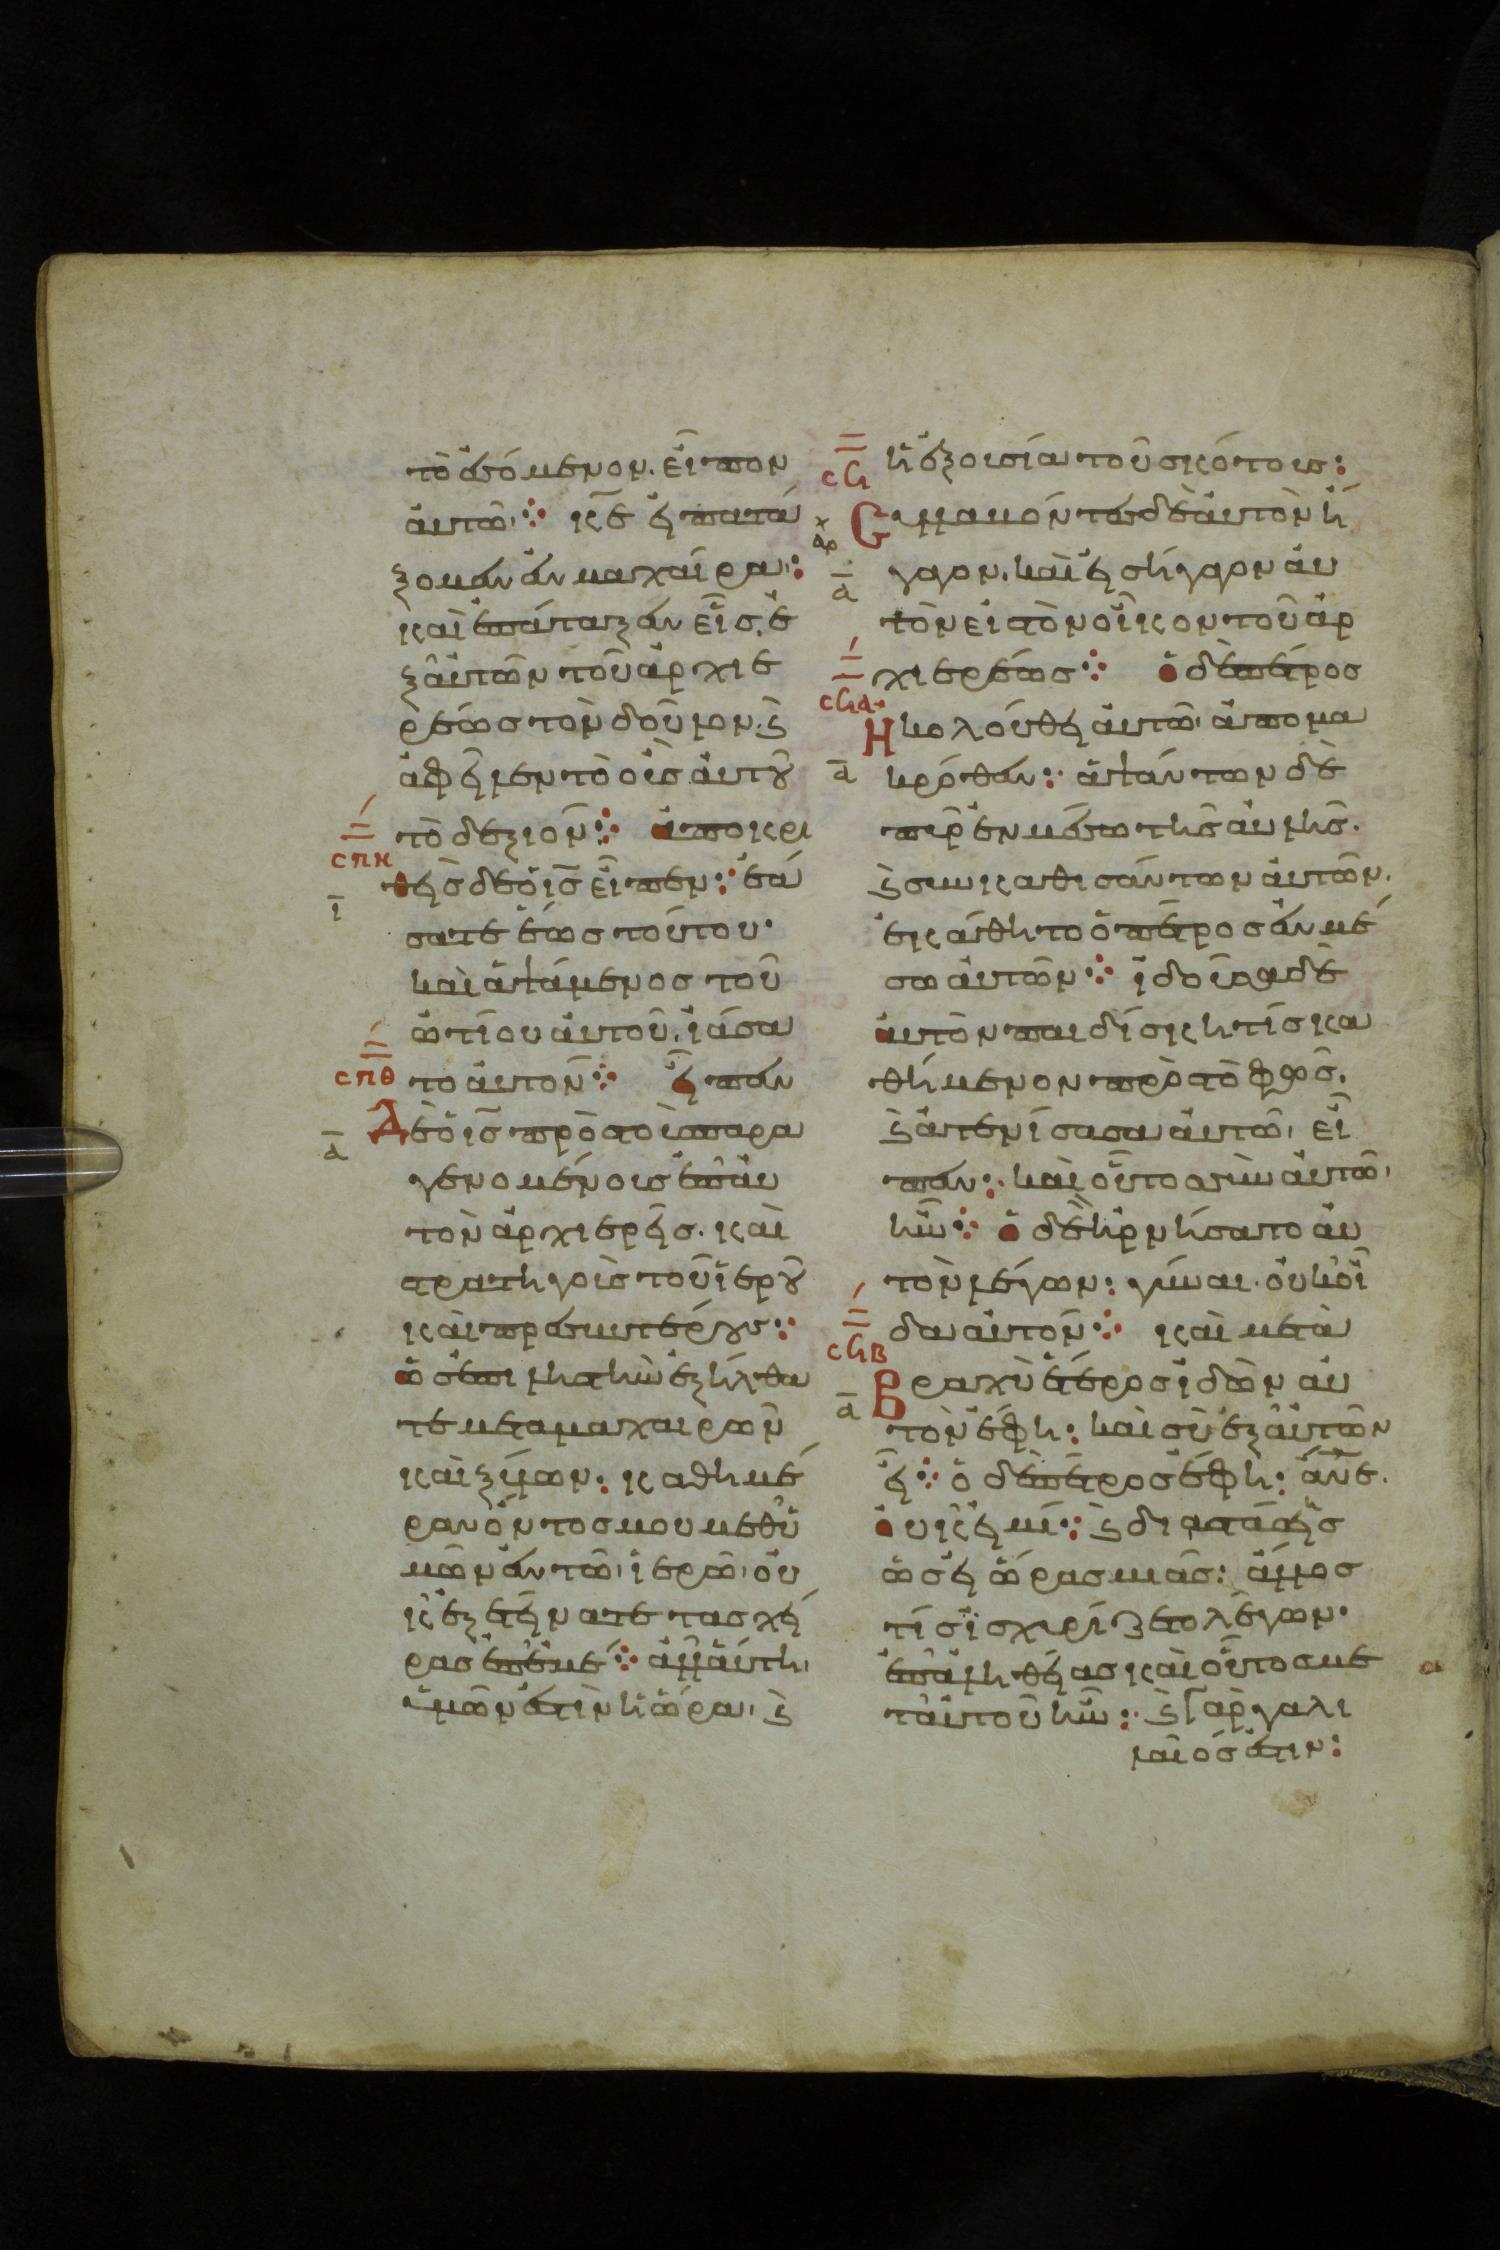 τὸ ἐσόμενον. εἶπον
αὐτῶ· κ̅ε̅ εἰ πατά
ξομεν ἐν μαχαίρα:
καὶ ἐπάταξεν εἷς, ἐ
ξ αὐτῶν τοῦ ἀρχιε
ρέως τὸν δοῦλον. ϗ
ἀφεῖλεν τὸ οὖς αὐτοῦ
σπη τὸ δεξιόν: ἀποκρι
ι̅ θεὶς δὲ ὁ ι̅ς̅ εἶπεν: ἐά
σατε ἕως τούτου·
καὶ ἁψάμενος τοῦ
ὠτίου αὐτοῦ, ἰάσα
σπθ το αὐτόν: εἶπεν
α̅ Δὲ ὁ ι̅ς̅ πρὸς τοὺς παρα
γενομένους ἐπ' αὐ
τὸν ἀρχιερεῖς. καὶ
στρατηγοὺς τοῦ ἱεροῦ
καὶ πρεσβυτέρους:
ὡς ἐπι ληστὴν ἐξήλθα
τε μετα μαχαιρῶν
καὶ ξύλων: καθημέ
ραν ὄντος μου μεθ' ὑ
μῶν ἐν τῶ ἱερῶ, οὐ
κ ἐξετείνατε τας χεί
ρας ἐπ' ἐμέ: ἀλλ' αὕτη,
ὑμῶν ἐστὶν ἡ ὥρα, ϗ
σϟ ἡ ἐξουσία τοῦ σκότους:
αρ Συλλαβόντες δὲ αὐτὸν ἤ
α̅ γαγον, καὶ εἰσήγαγον αὐ
τὸν εἰς τὸν οἶκον τοῦ ἀρ
σϟα χιερέως: ὁ δὲ πέτρος
Ηκολούθει αὐτῶ ἀπο μα
α̅ κρόθεν: ἁψάντων δὲ
πῦρ ἐν μέσω τῆς αὐλῆς.
ϗ συνκαθισάντων αὐτῶν,
ἐκάθητο ὁ πέτρος ἐν μέ
σω αὐτῶν: ἰδοῦσα δὲ
αὐτὸν παιδίσκη τίς κα
θήμενον πρὸς τὸ φῶς,
ϗ ἀτενίσασα αὐτῶ, εἶ
πεν: καὶ οὗτος σὺν αὐτῶ
ἦν: ὁ δὲ ἠρνήσατο αὐ
τὸν λέγων: γύναι. οὐκ οἶ
σϟβ δα αὐτόν: καὶ μετὰ
α̅ Βραχὺ ἕτερος ἰδὼν αὐ
τὸν ἔφη: καὶ σὺ ἐξ αὐτῶν
εἶ: ὁ δὲ πέτρος ἔφη: α̅ν̅ε̅.
οὐκ εἰμί: ϗ διαστάσης
ὡσεὶ ὥρας μιᾶς: ἄλλος
τίς ἰσχυρίζετο λέγων·
ἐπ' ἀληθείας καὶ οὗτος με
τ' αὐτοῦ ἦν: ϗ γὰρ γαλι
λαῖός ἐστιν: